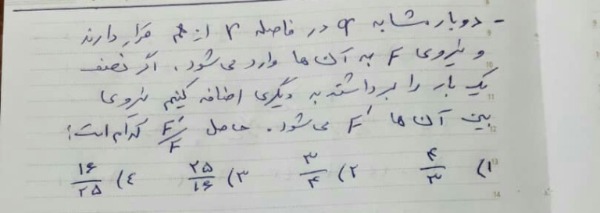 - دو بار مشابه q در فاصله r از هم قرار دارند
و نیروی F به آن ها وارد می شود. اگر نصف
یک بار را برداشته به دیگری اضافه کنیم نیروی
بین آن ها F' می شود. حاصل F'/F کدام است؛
۱) ۴/۳ ۲) ۳/۴ ۳) ۲۵/۱۶ ۴) ۱۶/۲۵